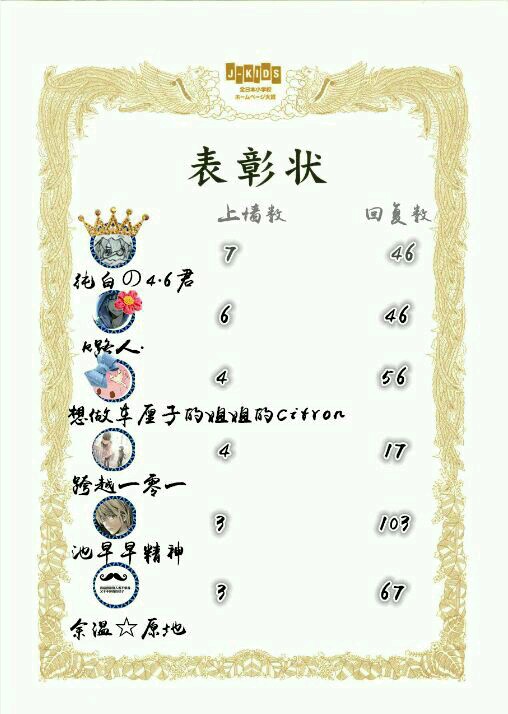 J-KIDS
全日本小学校
ホームページ大賞
表彰状
上墙数 回复数
7 46
纯白の4.6君
6 46
R路人.
4 56
想做车厘子的姐姐的Citron
4 17
跨越一零一
3 103
池早早精神
3 67
余温☆原地